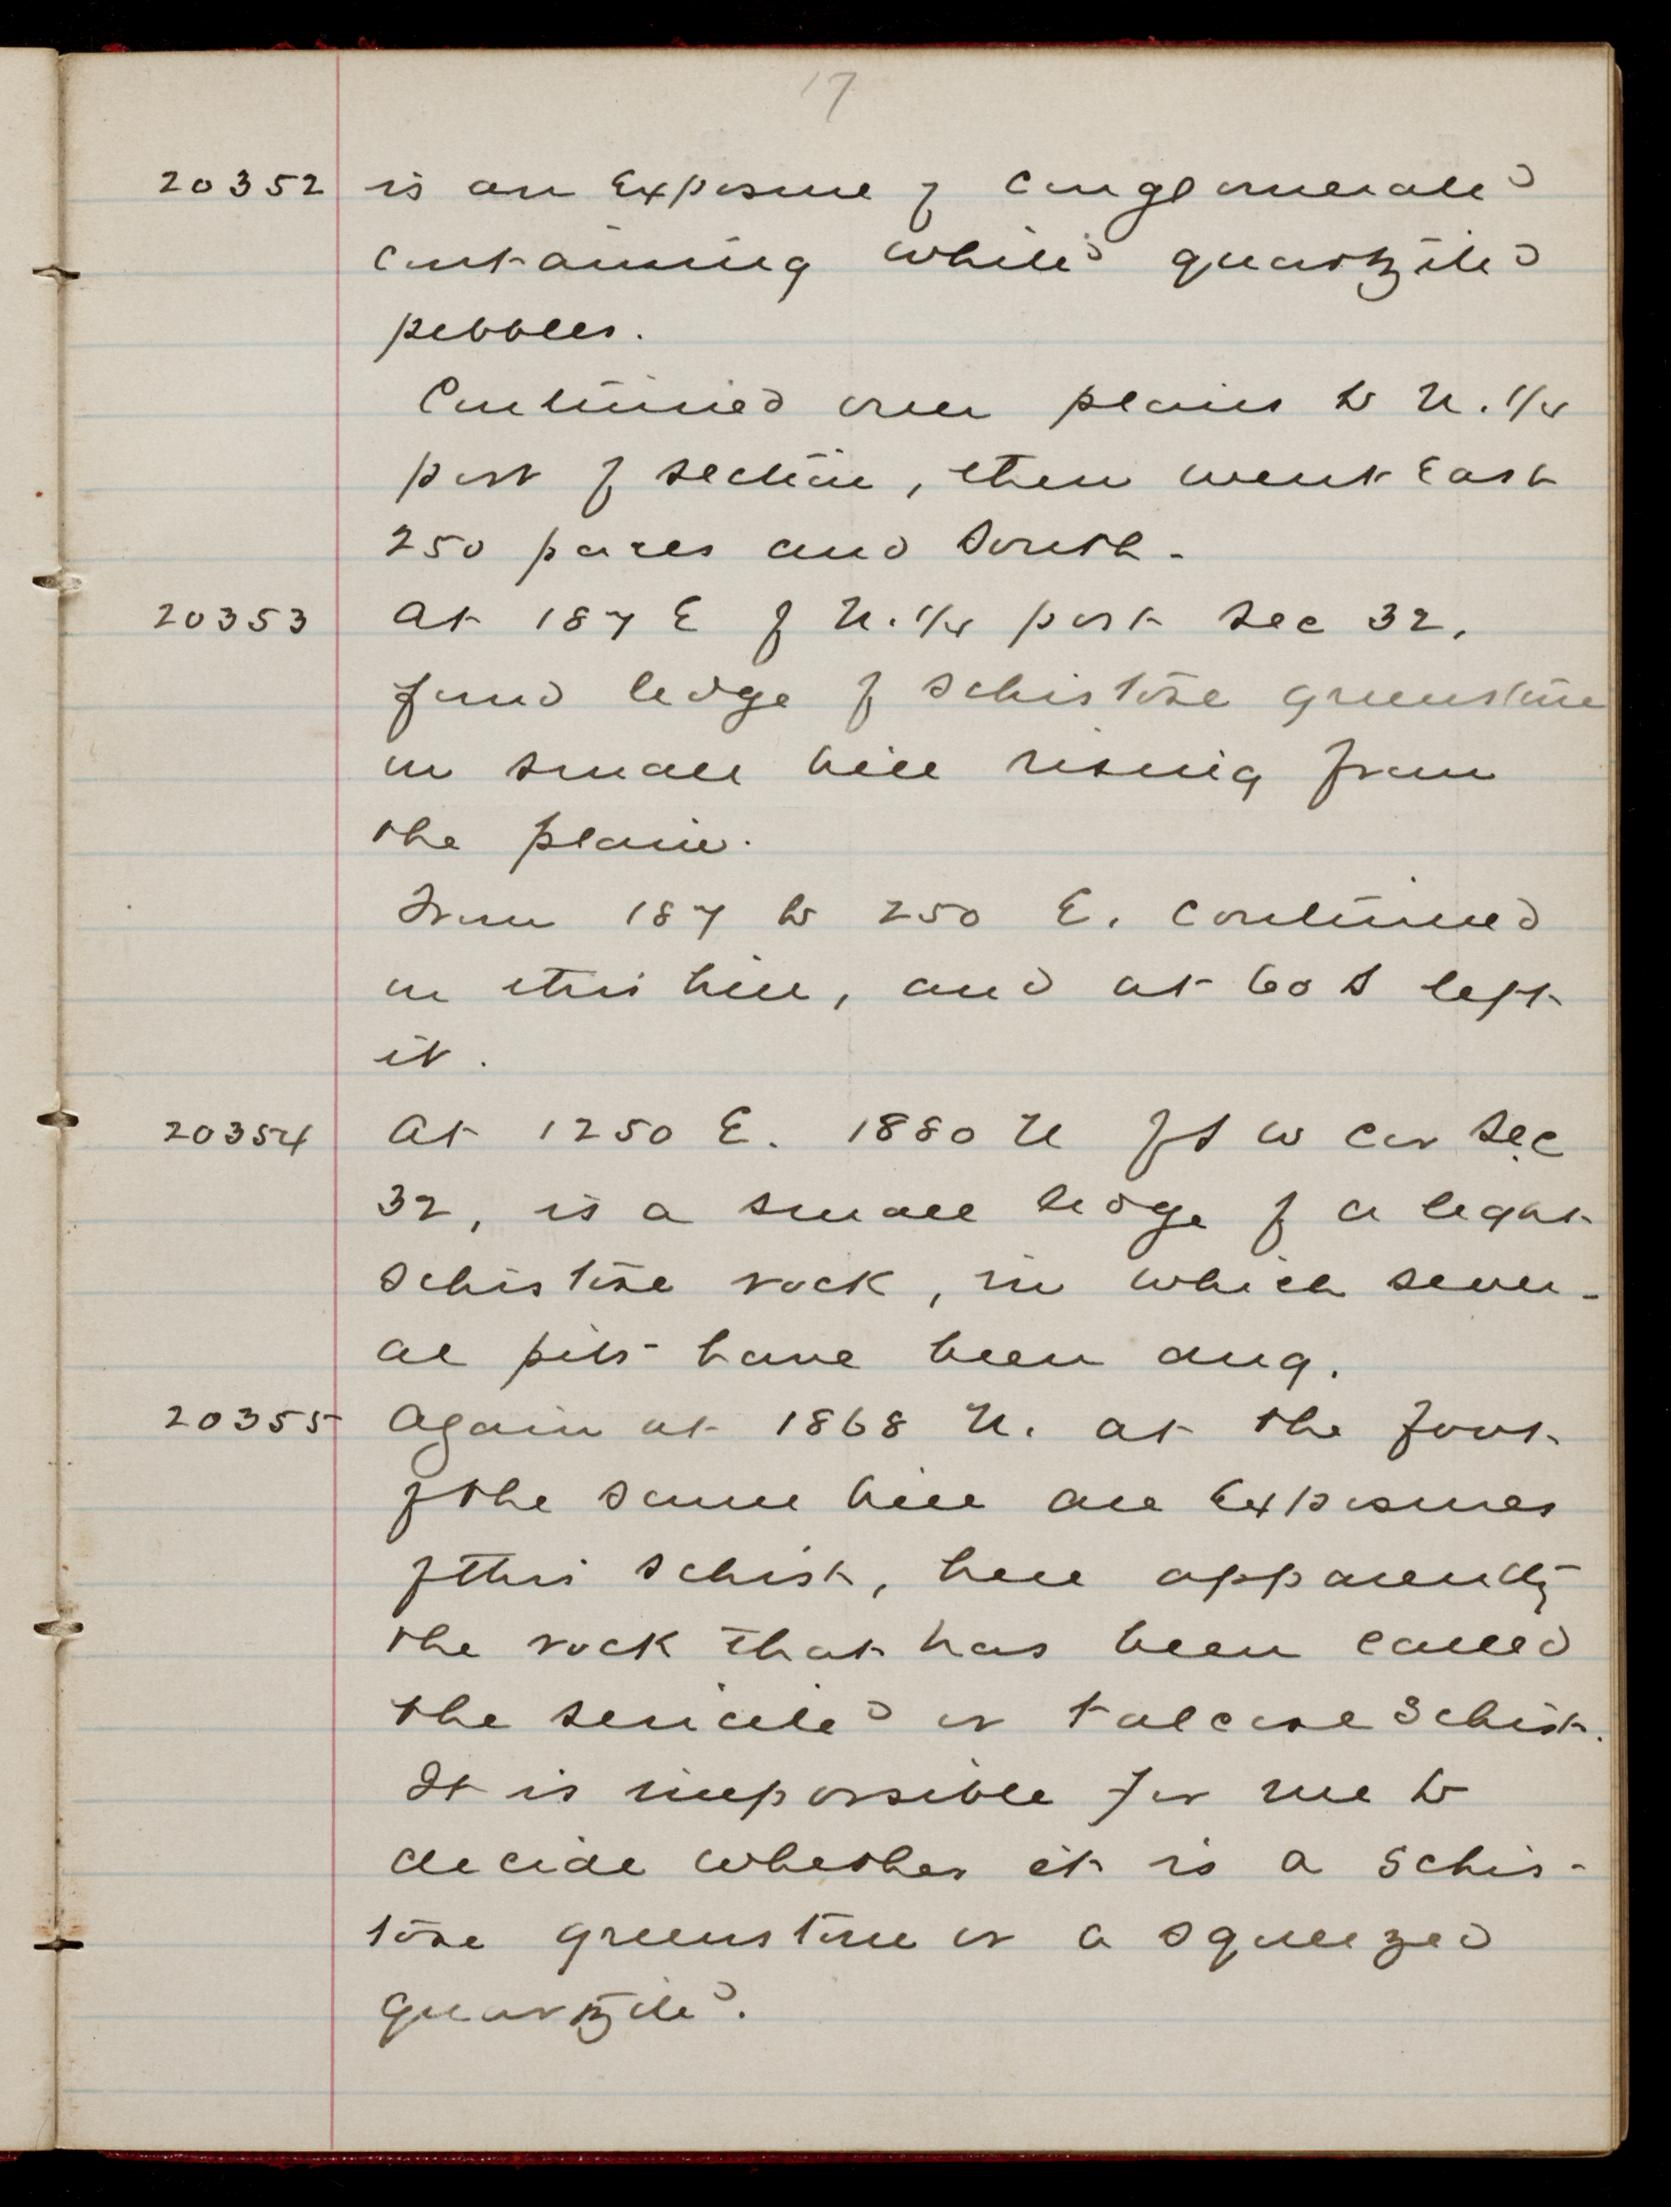 17
20352 is an exposure of conglomerate
containing white quartzite
pebbles.
Continued over plains to N. 1/4
post of section, then went East
250 paces and South.
20353 At 187 E of N. 1/4 post Sec 32,
found ledge of schistose greenstone
in small hill rising from
the plain.
From 187 to 250 E. continued
on this hill, and at 60 S left
it.
20354 At 1250 E. 1880 N of S W cor Sec
32, is a small ledge of a light
schistose rock, in which sever-
al pits have been dug.
20355 Again at 1868 N. at the foot
of the same hill are exposures
of this schist, here apparently
the rock that has been called
the sericite or talcose schist.
It is impossible for me to
decide whether it is a schis-
tose greenstone or a squeezed
quartzite.